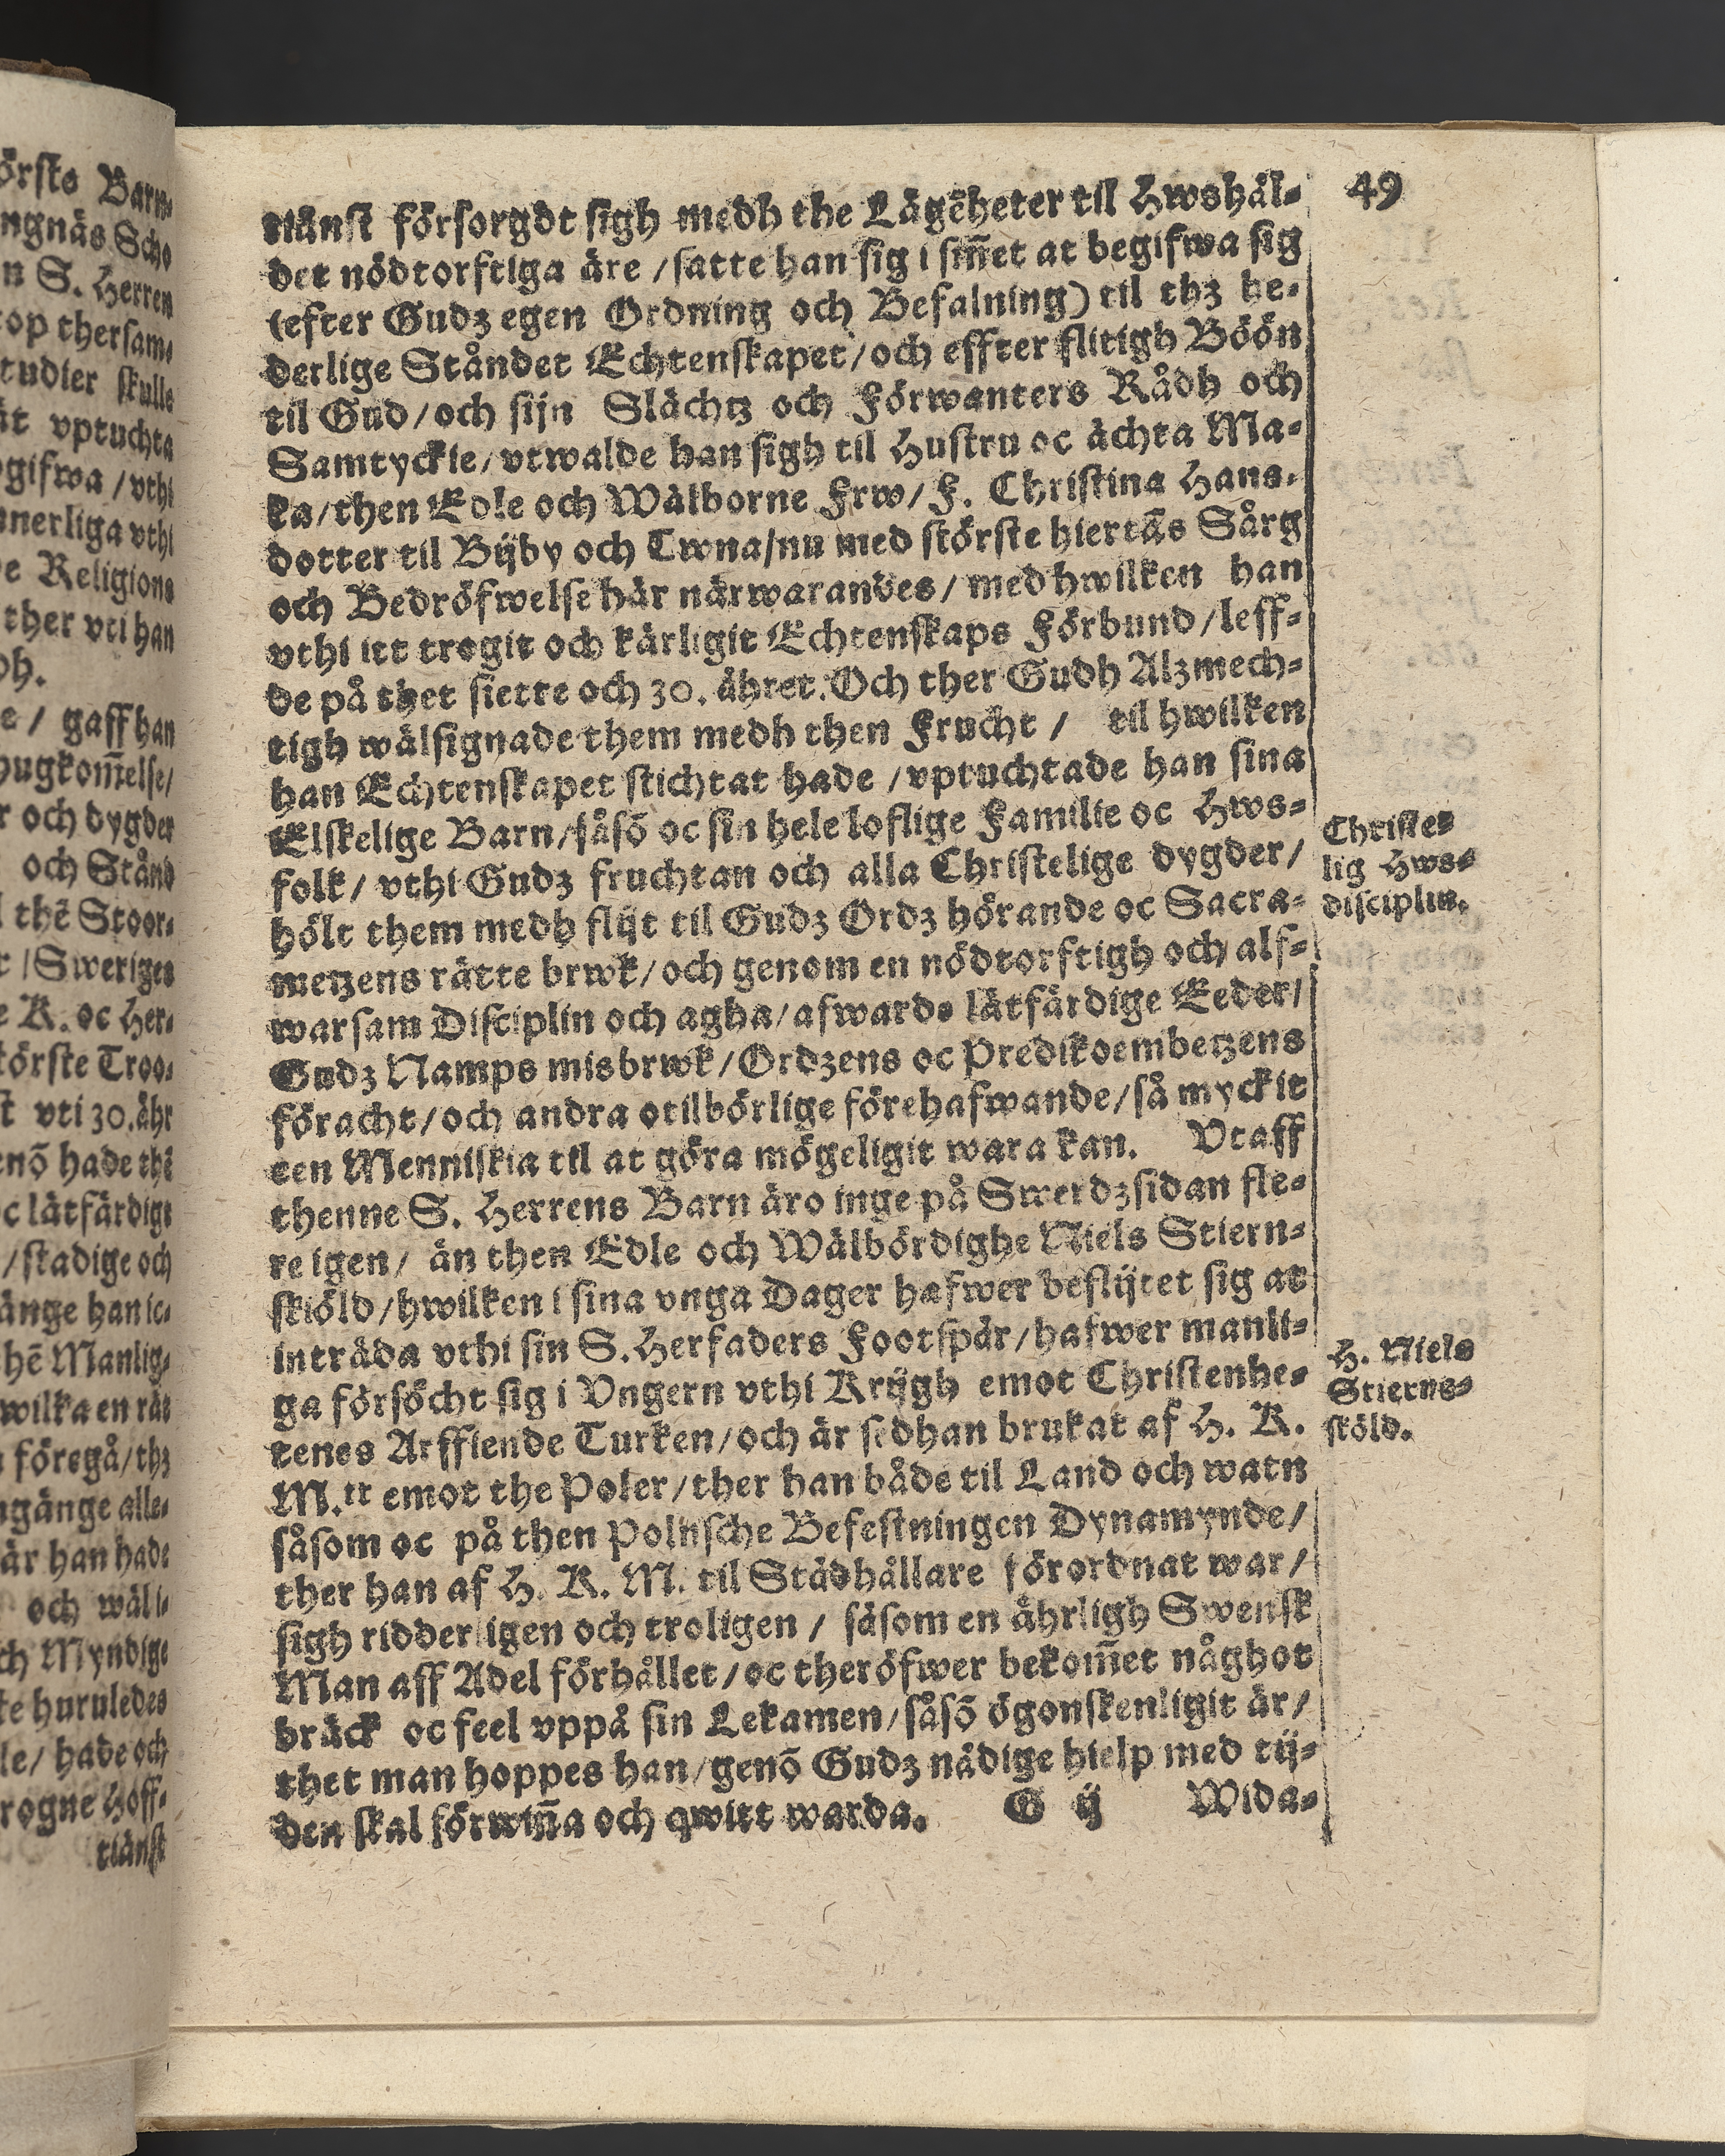 49
tiänst försorgdt sigh medh the Lägēheter til Hwshäl-
det nödtorftiga äre / satte han sig i sin̄et at begifwa sig
(efter Gudz egen Ordning och Befalning) til thz he-
derlige Ståndet Echtenskapet / och effter flitigh Böön
til Gud / och sijn Slächtz och Förwanters Rådh och
Samtyckie / vtwalde han sigh til Hustru oc ächta Ma-
ka / then Edle och Wälborne Frw / F. Christina Hans-
dotter til Bijby och Twna / nu med störste hiertās Sårg
och Bedröfwelse här närwarandes / med hwilken han
vthi itt trogit och kärligit Echtenskaps Förbund / leff-
de på thet siette och 30. åhret. Och ther Gudh Alzmech-
tigh wälsignade them medh then Frucht / til hwilken
han Echtenskapet stichtat hade / vptuchtade han sina
Elskelige Barn / såsō oc sin hele loflige Familie oc Hws-
folk / vthi Gudz fruchtan och alla Christelige dygder /
hölt them medh flijt til Gudz Ordz hörande oc Sacra-
metzens rätte brwk / och genom en nödtorftigh och alf-
warsam Disciplin och agha / afwards lätfärdige Eeder /
Gudz Namps misbrwk / Ordzens oc Predikoembetzens
föracht / och andra otilbörlige förehafwande / så myckit
een Menniskia til at göra mögeligit wara kan. Vtaff
thenne S. Herrens Barn äro inge på Swerdzsidan fle-
re igen / än then Edle och Wälbördighe Niels Stiern-
skiöld / hwilken i sina vnga Dager hafwer beflijtet sig at
inträda vthi sin S. Herfaders Footspår / hafwer manli-
ga försöcht sig i Vngern vthi Krijgh emot Christenhe-
tenes Arffiende Turken / och är sedhan brukat af H. K.
M.tt emot the Poler / ther han både til Land och watn
såsom oc på then Polnsche Befestningen Dynamynde /
ther han af H. K. M. til Städhållare förordnat war /
sigh ridderligen och troligen / såsom en ährligh Swensk
Man aff Adel förhållet / oc theröfwer bekom̄et någhot
bräck oc feel vppå sin Lekamen / såsō ögonskenligit är /
thet man hoppes han / genō Gudz nådige hielp med tij-
den skal förwin̄a och qwitt warda. G ij Wida-
Christe-
lig Hws-
disciplin.
H. Niels
Stierns-
sköld.
örste Barn-
ngnäs Scho
n S. Herren
top thersam-
tudier skulle
ät vptuchta
ogifwa / vthi
nnerliga vthi
e Religions
ther vti han
oh.
e / gaff han
hugkom̄else /
r och dygder
och Stånd
l thē Stoor-
r / Sweriges
e K. oc Her-
törste Troo-
st vti 30. åhr
enō hade thē
oc lätfärdige
/ stadige och
änge han ic-
hē Manlig-
wilka en rät
n föregå / thz
ngänge alle-
är han hade
och wäl i-
ch Myndige
te huruledes
le / hade och
rogne Hoff-
tiänst